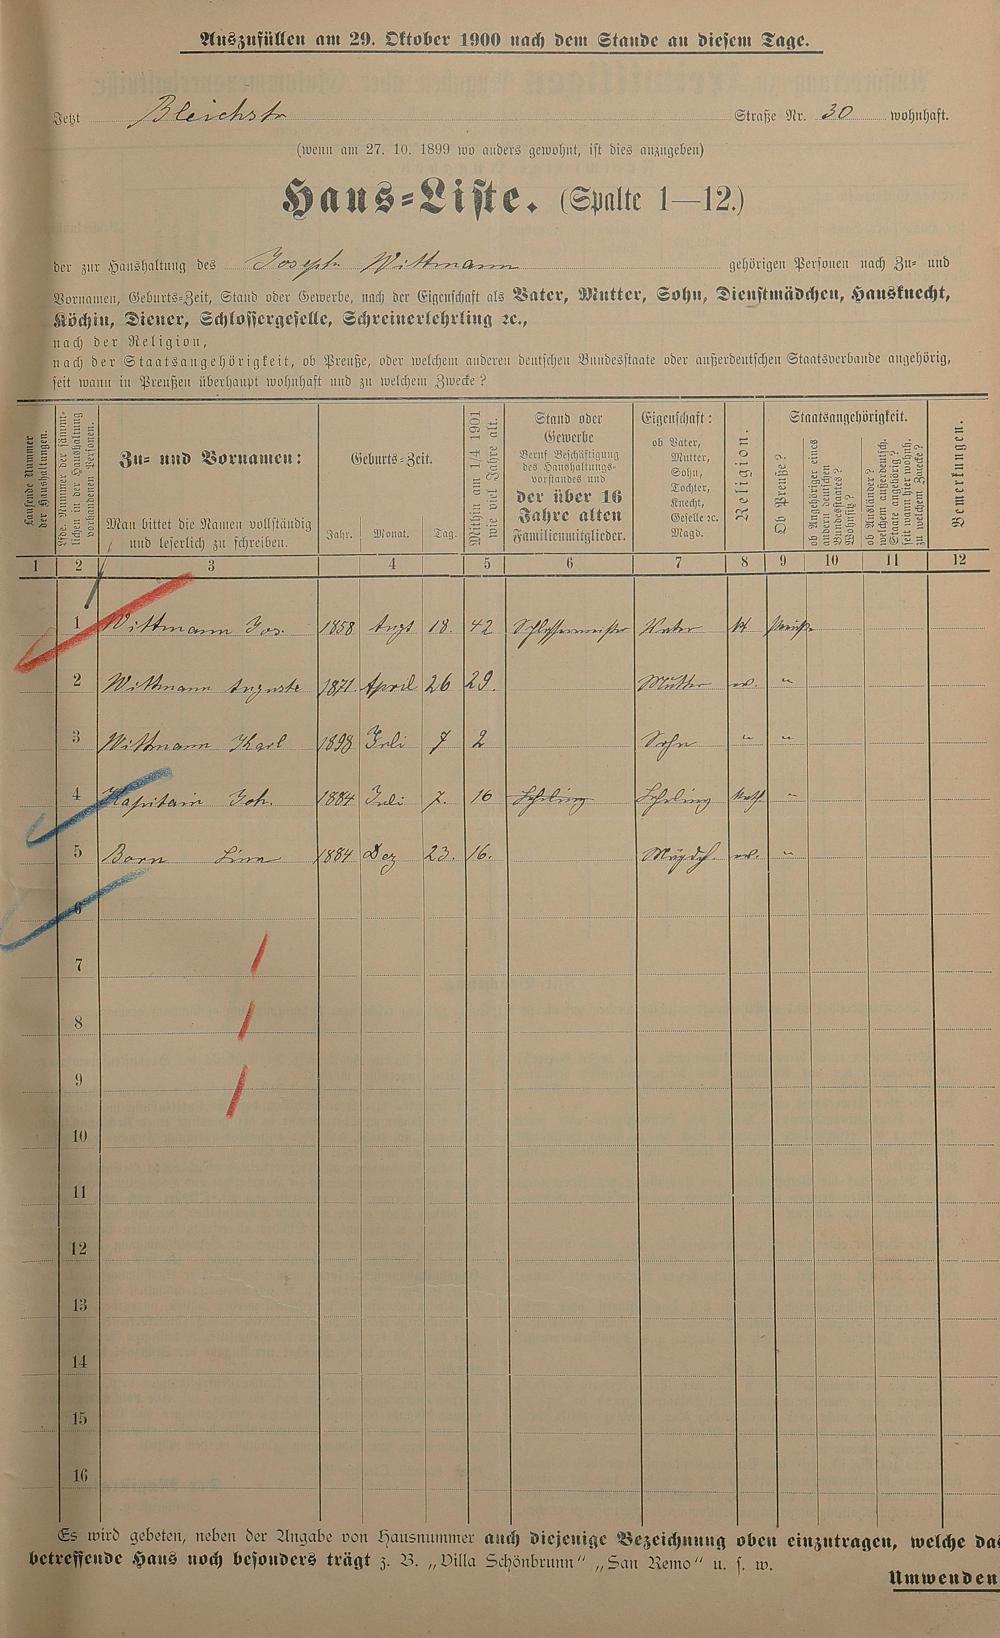 Auszufüllen am 29. Oktober 1900 nach dem Stande an diesem Tage.
Jetzt Bleichstr Straße Nr. 30 wohnhaft.
(wenn am 27. 10. 1899 wo anders gewohnt, ist dies anzugeben)
Haus-Liste. (Spalte 1—12.)
der zur Haushaltung des Joseph Wittmann gehörigen Personen nach Zu- und
Vornamen, Geburts-Zeit, Stand oder Gewerbe, nach der Eigenschaft als Vater, Mutter, Sohn, Dienstmädchen, Hausknecht,
Köchin, Diener, Schlossergeselle, Schreinerlehrling ꝛc.,
nach der Religion,
nach der Staatsangehörigkeit, ob Preuße, oder welchem anderen deutschen Bundesstaate oder außerdeutschen Staatsverbande angehörig,
seit wann in Preußen überhaupt wohnhaft und zu welchem Zwecke?
Laufende Nummer der Haushaltungen.
Lfde. Nummer der sämmtlichen in der Haushaltung vorhandenen Personen.
Zu- und Vornamen:
Man bittet die Namen vollständig
und leserlich zu schreiben.
Geburts-Zeit.
Jahr. Monat. Tag.
Mithin am 1/4 1901
wie viel Jahre alt.
Stand oder
Gewerbe
Beruf Beschäftigung
des Haushaltungs-
vorstandes und
der über 16
Jahre alten
Familienmitglieder.
Eigenschaft:
ob Vater,
Mutter,
Sohn,
Tochter,
Knecht,
Geselle ꝛc.
Magd.
Religion.
Staatsangehörigkeit.
Ob Preuße?
ob Angehöriger eines
andern deutschen
Bundesstaates?
Wohnsitz?
ob Ausländer?
welchem außerdeutsch.
Staate angehörig?
seit wann hier wohnh.
zu welchem Zwecke?
Bemerkungen.
1 2 3 4 5 6 7 8 9 10 11 12
1 Wittmann Jos. 1858 Augt 18. 42 Schlossermeister Vater K Preuße
2 Wittmann Auguste 1871 April 26 29. Mutter ev. "
3 Wittmann Karl 1898 Juli 7 2 Sohn " "
4 Kapitain Joh. 1884 Juli 7. 16 Lehrling Lehrling Kath. "
5 Born Lina 1884 Dez 23. 16. Mägdch. ev. "
6
7
8
9
10
11
12
13
14
15
16
Es wird gebeten, neben der Angabe von Hausnummer auch diejenige Bezeichnung oben einzutragen, welche das
betreffende Haus noch besonders trägt z. B. „Villa Schönbrunn“ „San Remo“ u. s. w.
Umwenden